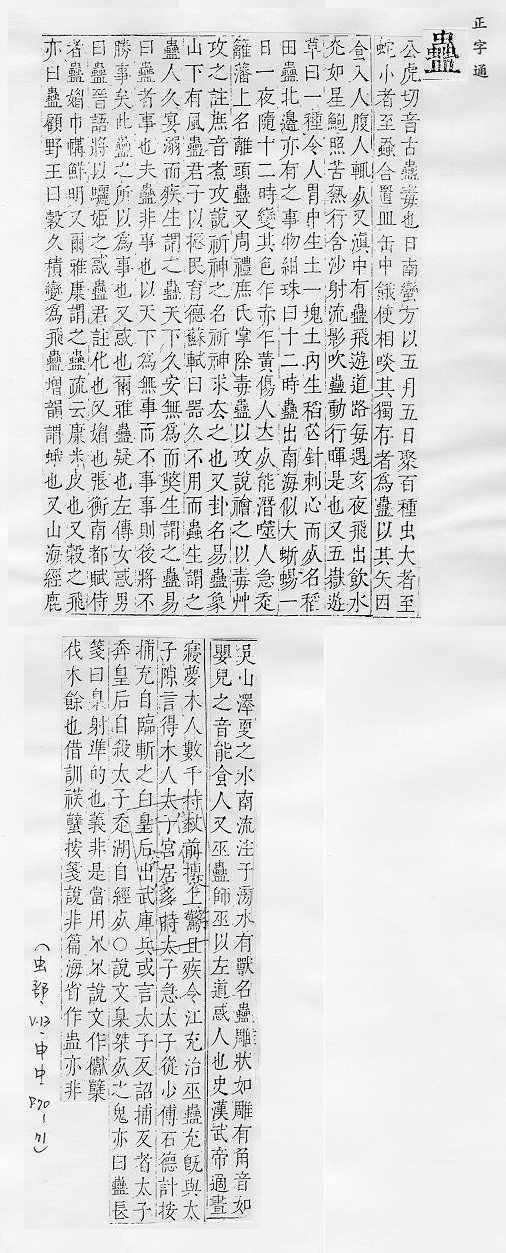 正字通
蠱
公虎切音古蠱毒也日南蠻方以五月五日聚百種虫大者至
蛇小者至蝨合置皿缶中餓使相啖其獨存者爲蠱以其矢因
食入人腹人輒死又滇中有蠱飛遊道路每遇亥夜飛出飲水
光如星鮑照苦熱行含沙射流影吹蠱動行暉是也又五嶽遊
草曰一種令人胃中生土一塊土內生稻芒針刺心而死名稻
田蠱北邊亦有之事物紺珠曰十二時蠱出南海似大蜥蜴一
日一夜隨十二時變其色乍赤乍黃傷人立死能潛噬人急走
籬藩上名離頭蟲又周禮庶氏掌除毒蠱以攻說禬之以毒艸
攻之註庶音煮攻說祈神之名祈神求去之也又卦名易蠱象
山下有風蠱君子以振民育德蘇軾曰器久不用而蟲生謂之
蠱人久宴溺而疾生謂之蠱天下久安無爲而獘生謂之蠱易
曰蠱者事也夫蠱非事也以天下爲無事而不事事則後將不
勝事矣此蠱之所以爲事也又惑也爾雅蠱疑也左傳女惑男
曰蠱晉語將以驪姬之惑蠱君註化也又媚也張衡南都賦侍
者蠱媚巾幘鮮明又爾雅康謂之蠱疏云康米皮也又穀之飛
亦曰蠱顧野王曰穀久積變爲飛蠱增韻謂蛾也又山海經鹿
吳山澤更之水南流注于滂水有獸名蠱雕狀如雕有角音如
嬰兒之音能食人又巫蠱師巫以左道惑人也史漢武帝過晝
寢夢木人數千持杖前搏上驚且疾令江充治巫蠱充旣與太
子隙言得木人太子宮居多時太子急太子從少傅石德計按
捕充自臨斬之白皇后出武庫兵或言太子反詔捕反者太子
奔皇后自殺太子走湖自經死○說文臬桀死之鬼亦曰蠱長
箋曰臬射準的也義非是當用𣎴𣎴說文作𣡌櫱
伐木餘也借訓祅蠥按箋說非篇海省作蛊亦非
(虫部、V.13、申中 P.70-71)